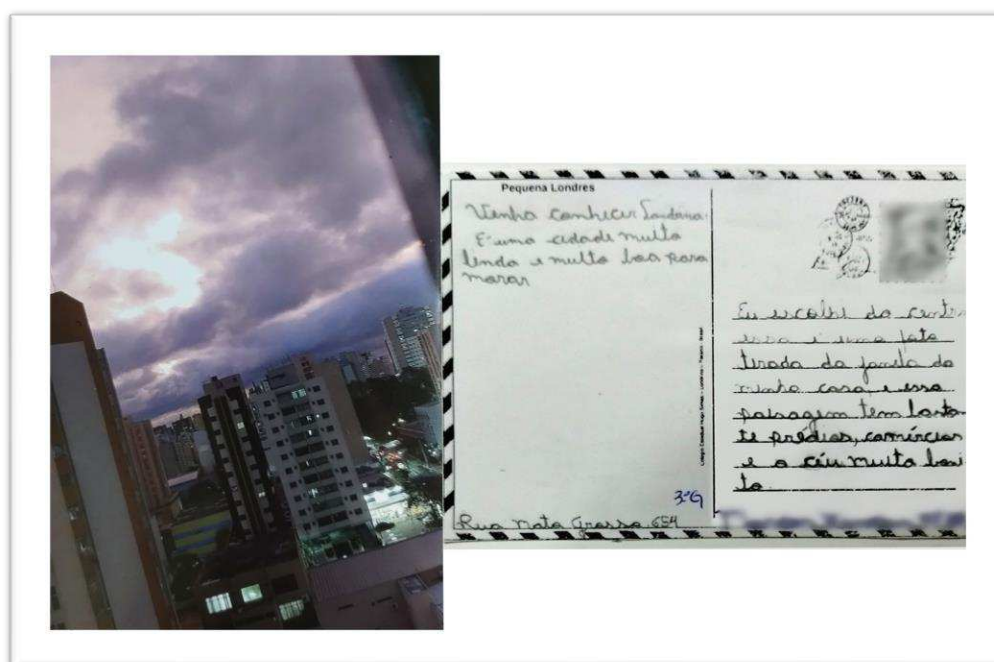 Pequena Londres
Venha conhecer Londrina.
É uma cidade muito
linda e muito boa para
morar
Rua Mato Grosso 654
3ºG
Colégio Estadual Hugo Simas - Londrina - Paraná - Brasil
Eu escolhi do centro
essa é uma foto
tirada da janela da
minha casa, e essa
paisagem tem bastan
te prédios, comércios
e o céu muito boni
to.